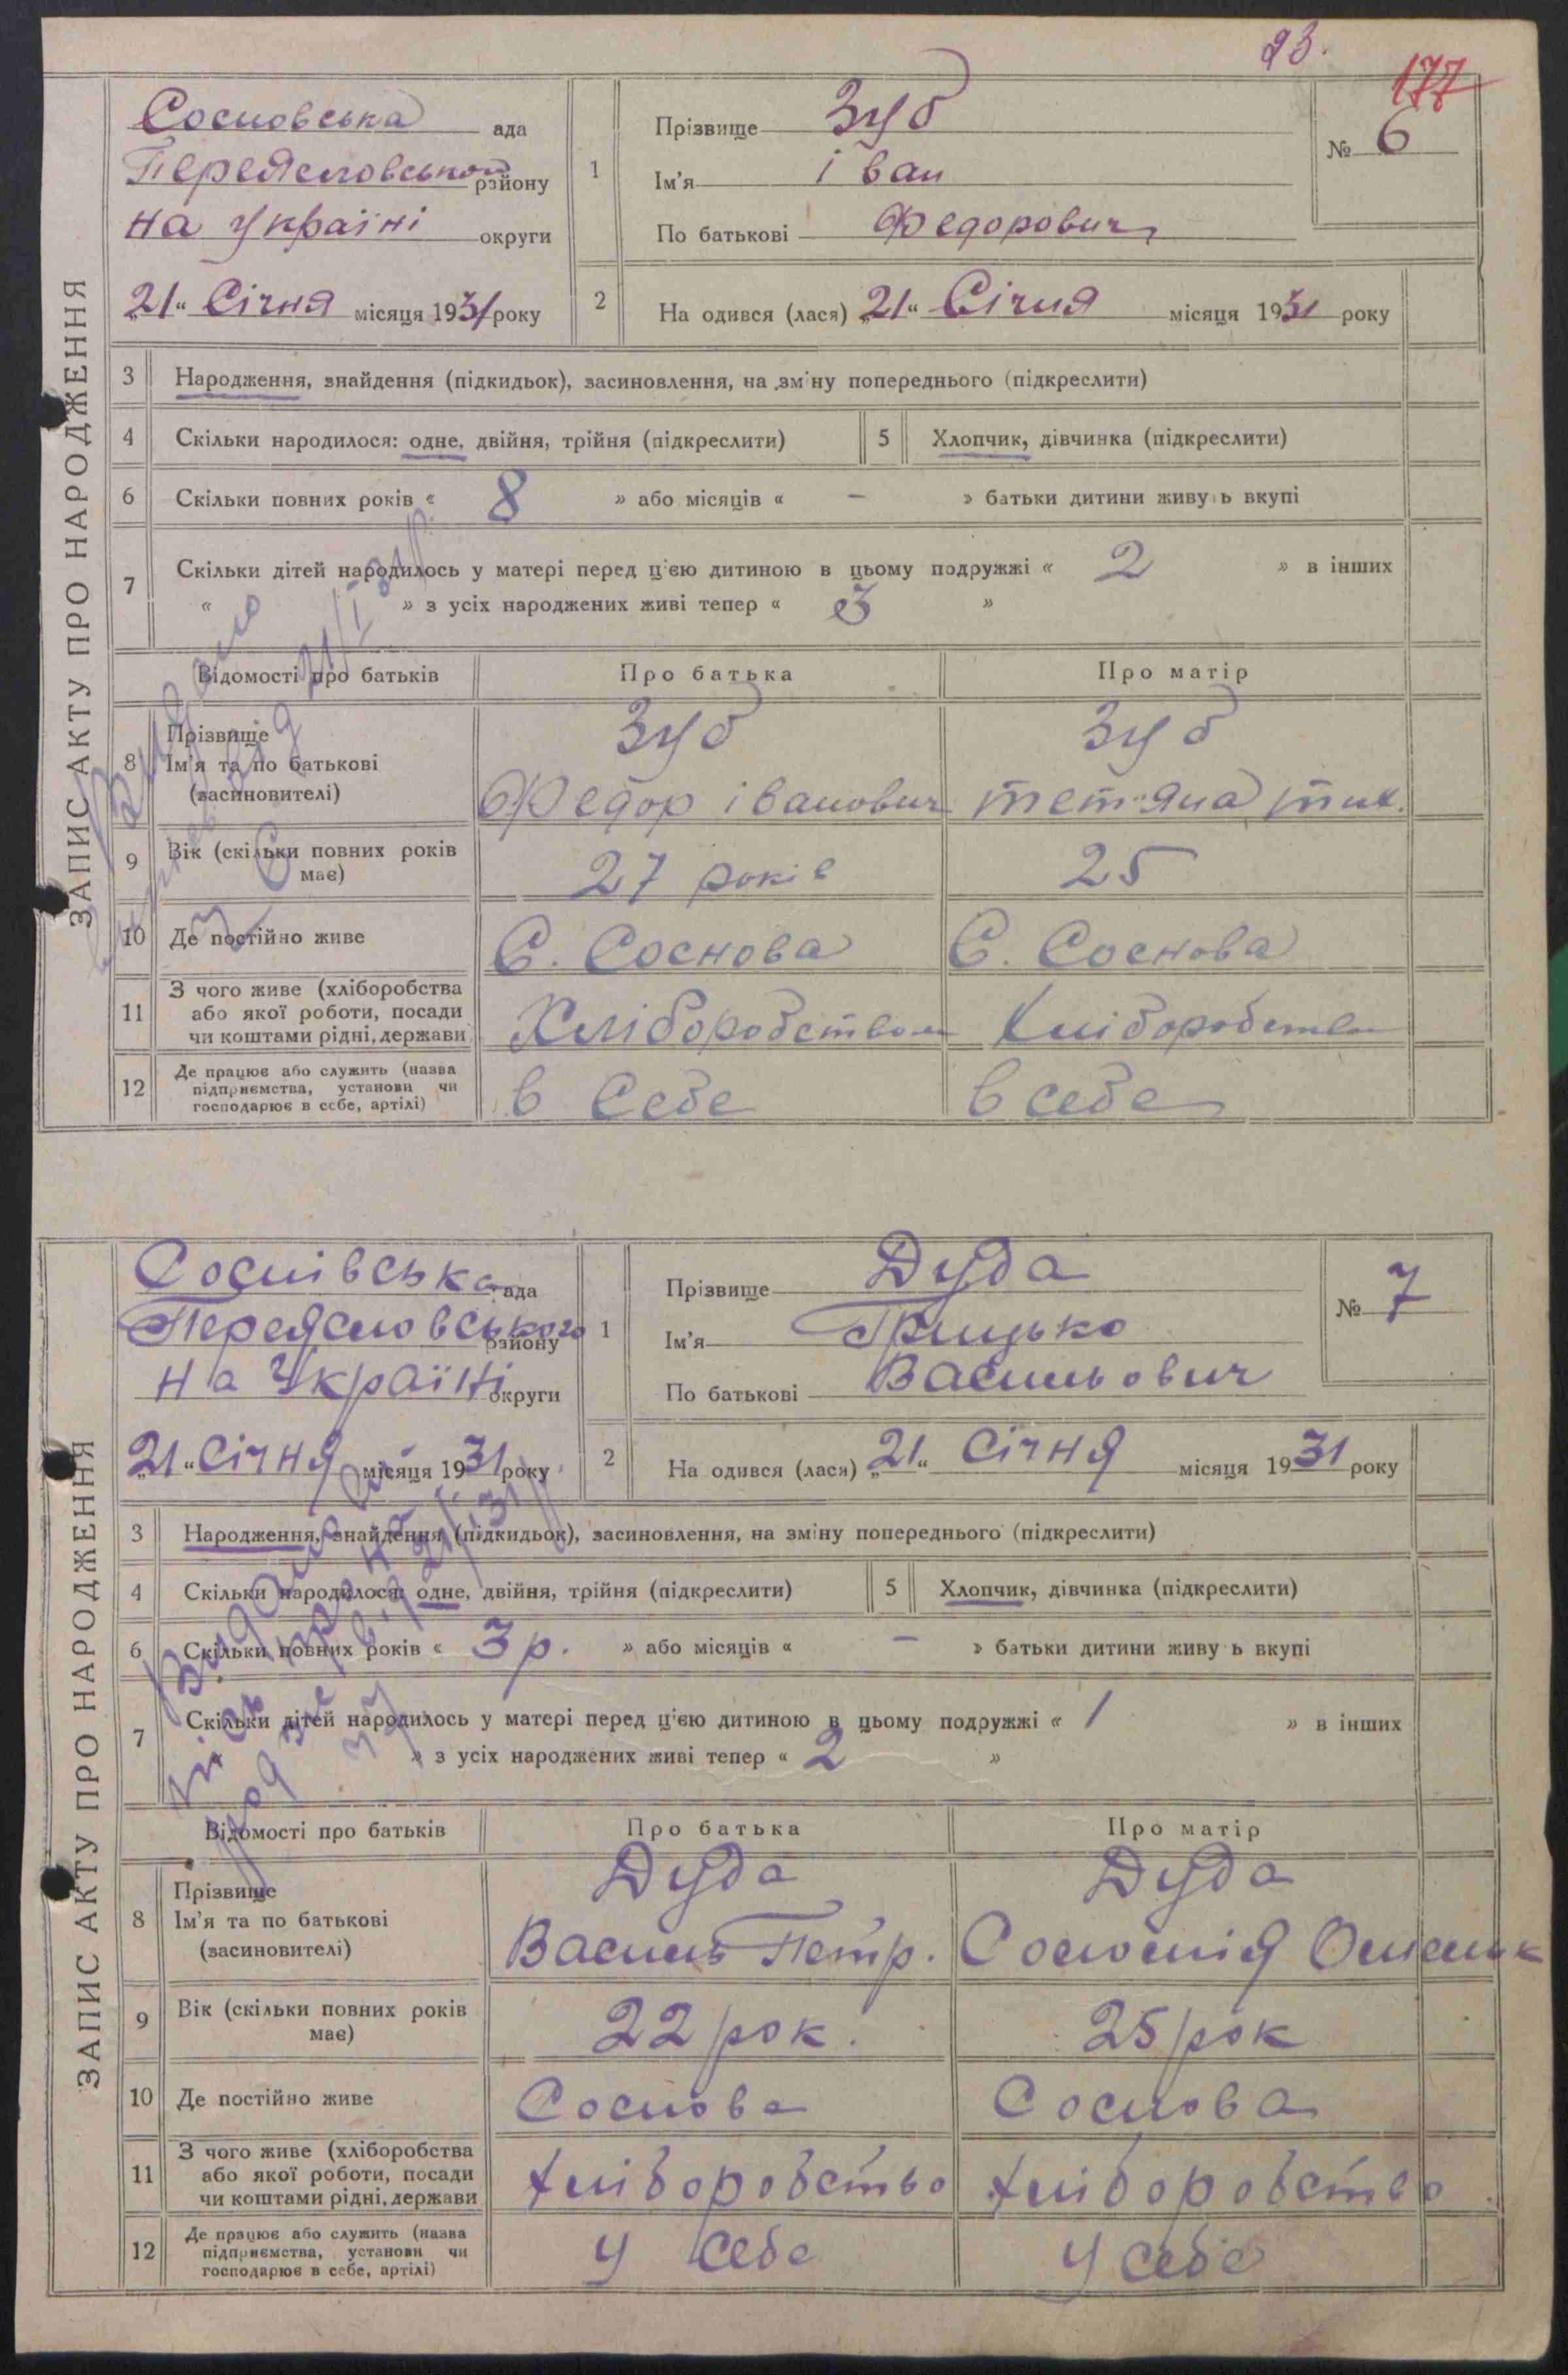 93.
177
ЗАПИС АКТУ ПРО НАРОДЖЕННЯ
Сосновська ада
Переясловського району
на Україні округи
„21“ Січня місяця 1931 року
1 Прізвище Зуб
Ім'я Іван
По батькові Федорович
№ 6
2 На одився (лася) „21“ Січня місяця 1931 року
3 Народження, знайдення (підкидьок), засиновлення, на зміну попереднього (підкреслити)
4 Скільки народилося: одне, двійня, трійня (підкреслити) 5 Хлопчик, дівчинка (підкреслити)
6 Скільки повних років « 8 » або місяців « — » батьки дитини живу ь вкупі
7 Скільки дітей народилось у матері перед ц'єю дитиною в цьому подружжі « 2 » в інших
« » з усіх народжених живі тепер « 3 »
Відомості про батьків Про батька Про матір
8 Прізвище Зуб Зуб
Ім'я та по батькові Федор Іванович Тетяна Тих.
(засиновителі)
9 Вік (скільки повних років має) 27 років 25
10 Де постійно живе С. Соснова С. Соснова
11 З чого живе (хліборобства
або якої роботи, посади Хліборобством Хліборобство
чи коштами рідні, держави
12 Де працює або служить (назва
підприємства, установи чи в Себе в себе
господарює в себе, артілі)
Видано
21/I 31 р.
ЗАПИС АКТУ ПРО НАРОДЖЕННЯ
Соснівська ада
Переясловського району
на Україні округи
„21“ Січня місяця 1931 року
1 Прізвище Дуда
Ім'я Грицько
По батькові Васильович
№ 7
2 На одився (лася) „21“ Січня місяця 1931 року
3 Народження, знайдення (підкидьок), засиновлення, на зміну попереднього (підкреслити)
4 Скільки народилося: одне, двійня, трійня (підкреслити) 5 Хлопчик, дівчинка (підкреслити)
6 Скільки повних років « 3 р. » або місяців « — » батьки дитини живу ь вкупі
7 Скільки дітей народилось у матері перед ц'єю дитиною в цьому подружжі « 1 » в інших
» з усіх народжених живі тепер « 2 »
Відомості про батьків Про батька Про матір
8 Прізвище Дуда Дуда
Ім'я та по батькові Василь Петр. Соломія
(засиновителі)
9 Вік (скільки повних років має) 22 рок. 25 рок
10 Де постійно живе Соснова Соснова
11 З чого живе (хліборобства
або якої роботи, посади Хліборобство Хліборобство
чи коштами рідні, держави
12 Де працює або служить (назва
підприємства, установи чи У себе У себе
господарює в себе, артілі)